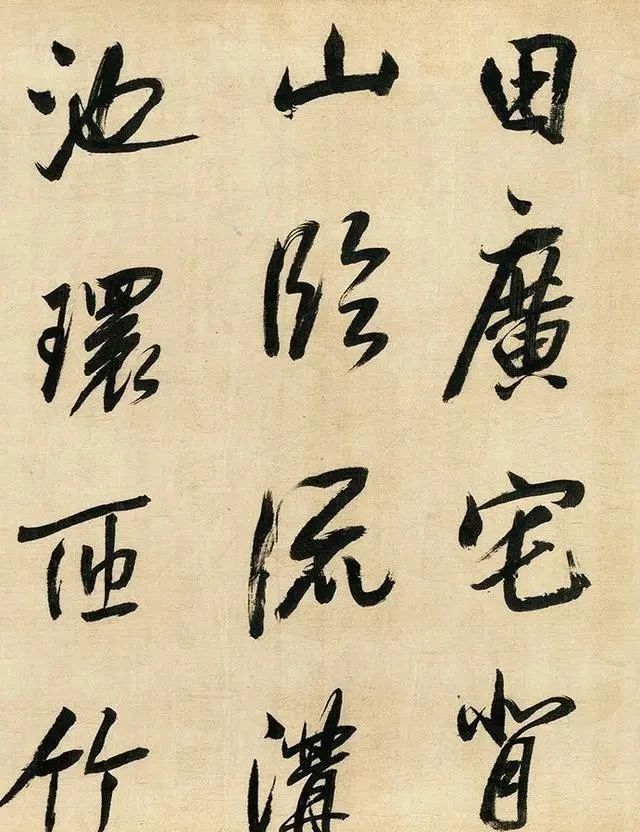 田廣宅背
山臨流溝
池環匝竹